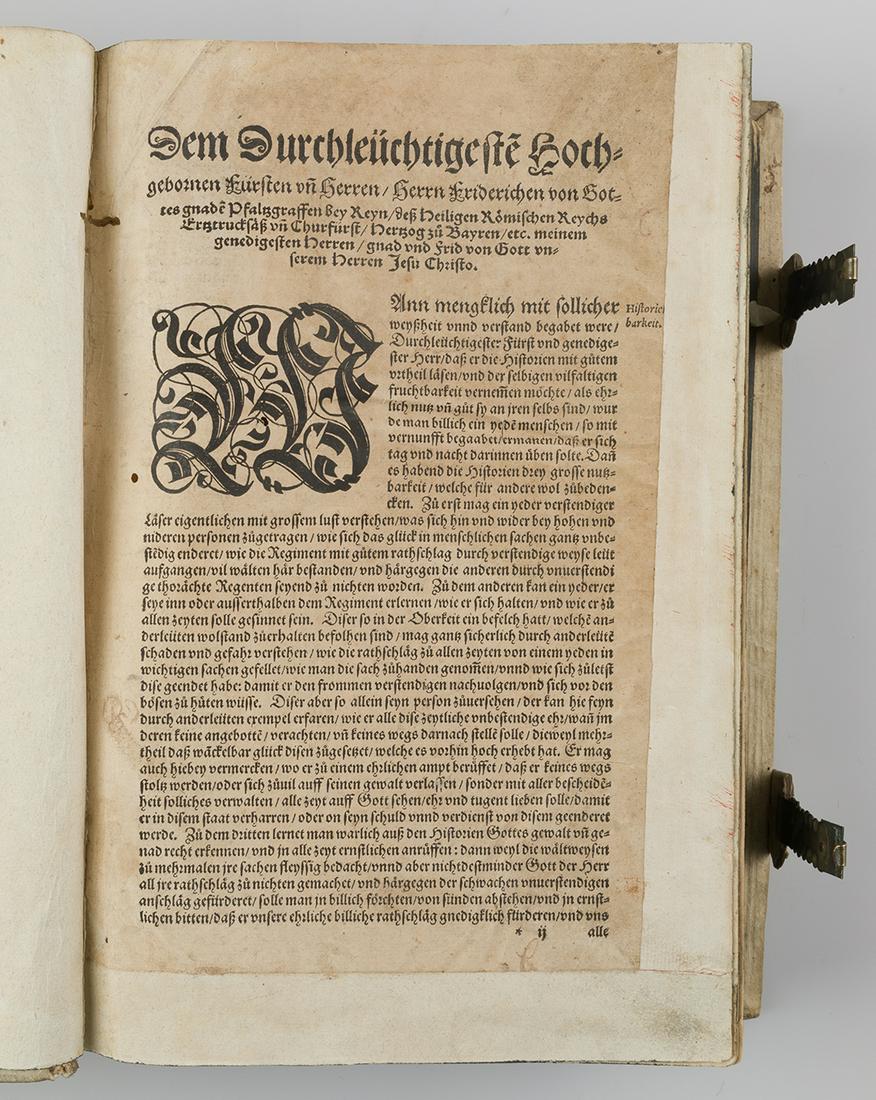 Dem Durchleüchtigestẽ Hoch-
gebornen Fürsten vñ Herren / Herrn Friderichen von Got-
tes gnadẽ Pfaltzgraffen bey Reyn / deß Heiligen Römischen Reychs
Ertztrucksäß vñ Churfürst / Hertzog zů Bayren / etc. meinem
genedigesten Herren / gnad vnd Frid von Gott vn-
serem Herren Jesu Christo.
WAnn mengklich mit sollicher
Historie
weyßheit vnnd verstand begabet were /
barkeit.
Durchleüchtigester Fürst vnd genedige-
ster Herr / daß er die Historien mit gůtem
vrtheil läsen / vnd der selbigen vilfaltigen
fruchtbarkeit vernem̃en möchte / als ehr-
lich nutz vñ gůt sy an jren selbs sind / wur
de man billich ein yedẽ menschen / so mit
vernunfft begaabet / ermanen / daß er sich
tag vnd nacht darinnen üben solte. Dañ
es habend die Historien drey grosse nutz-
barkeit / welche für andere wol zůbeden-
cken. Zů erst mag ein yeder verstendiger
Läser eigentlichen mit grossem lust verstehen / was sich hin vnd wider bey hohen vnd
nideren personen zůgetragen / wie sich das glück in menschlichen sachen gantz vnbe-
stẽdig enderet / wie die Regiment mit gůtem rathschlag durch verstendige weyse leüt
aufgangen / vil wälten här bestanden / vnd härgegen die anderen durch vnuerstendi
ge thorächte Regenten seyend zů nichten worden. Zů dem anderen kan ein yeder / er
seye inn oder ausserthalben dem Regiment erlernen / wie er sich halten / vnd wie er zů
allen zeyten solle gesinnet sein. Diser so in der Oberkeit ein befelch hatt / welchẽ an-
derleüten wolstand zůerhalten befolhen sind / mag gantz sicherlich durch anderleütẽ
schaden vnd gefahr verstehen / wie die rathschläg zů allen zeyten von einem yeden in
wichtigen sachen gefellet / wie man die sach zůhanden genom̃en / vnnd wie sich zůletst
dise geendet habe: damit er den frommen verstendigen nachuolgen / vnd sich vor den
bösen zů hüten wüsse. Diser aber so allein seyn person zůuersehen / der kan hie feyn
durch anderleüten exempel erfaren / wie er alle dise zeytliche vnbestendige ehr / wañ jm
deren keine angebottẽ / verachten / vñ keines wegs darnach stellẽ solle / dieweyl mehr-
theil daß wäckelbar glück disen zůgesetzet / welche es vorhin hoch erhebt hat. Er mag
auch hiebey vermercken / wo er zů einem ehrlichen ampt berüffet / daß er keines wegs
stoltz werden / oder sich zůuil auff seinen gewalt verlassen / sonder mit aller bescheidẽ-
heit solliches verwalten / alle zeyt auff Gott sehen / ehr vnd tugent lieben solle / damit
er in disem staat verharren / oder on seyn schuld vnnd verdienst von disem geenderet
werde. Zů dem dritten lernet man warlich auß den Historien Gottes gewalt vñ ge-
nad recht erkennen / vnd jn alle zeyt ernstlichen anrüffen: dann weyl die wältweysen
zů mehrmalen jre sachen fleyssig bedacht / vnnd aber nichtdestminder Gott der Herr
all jre rathschläg zů nichten gemachet / vnd härgegen der schwachen vnuerstendigen
anschläg gefürderet / solle man jn billich förchten / von sünden abstehen / vnd jn ernst-
lichen bitten / daß er vnsere ehrliche billiche rathschläg gnedigklich fürderen / vnd vns
* ij alle